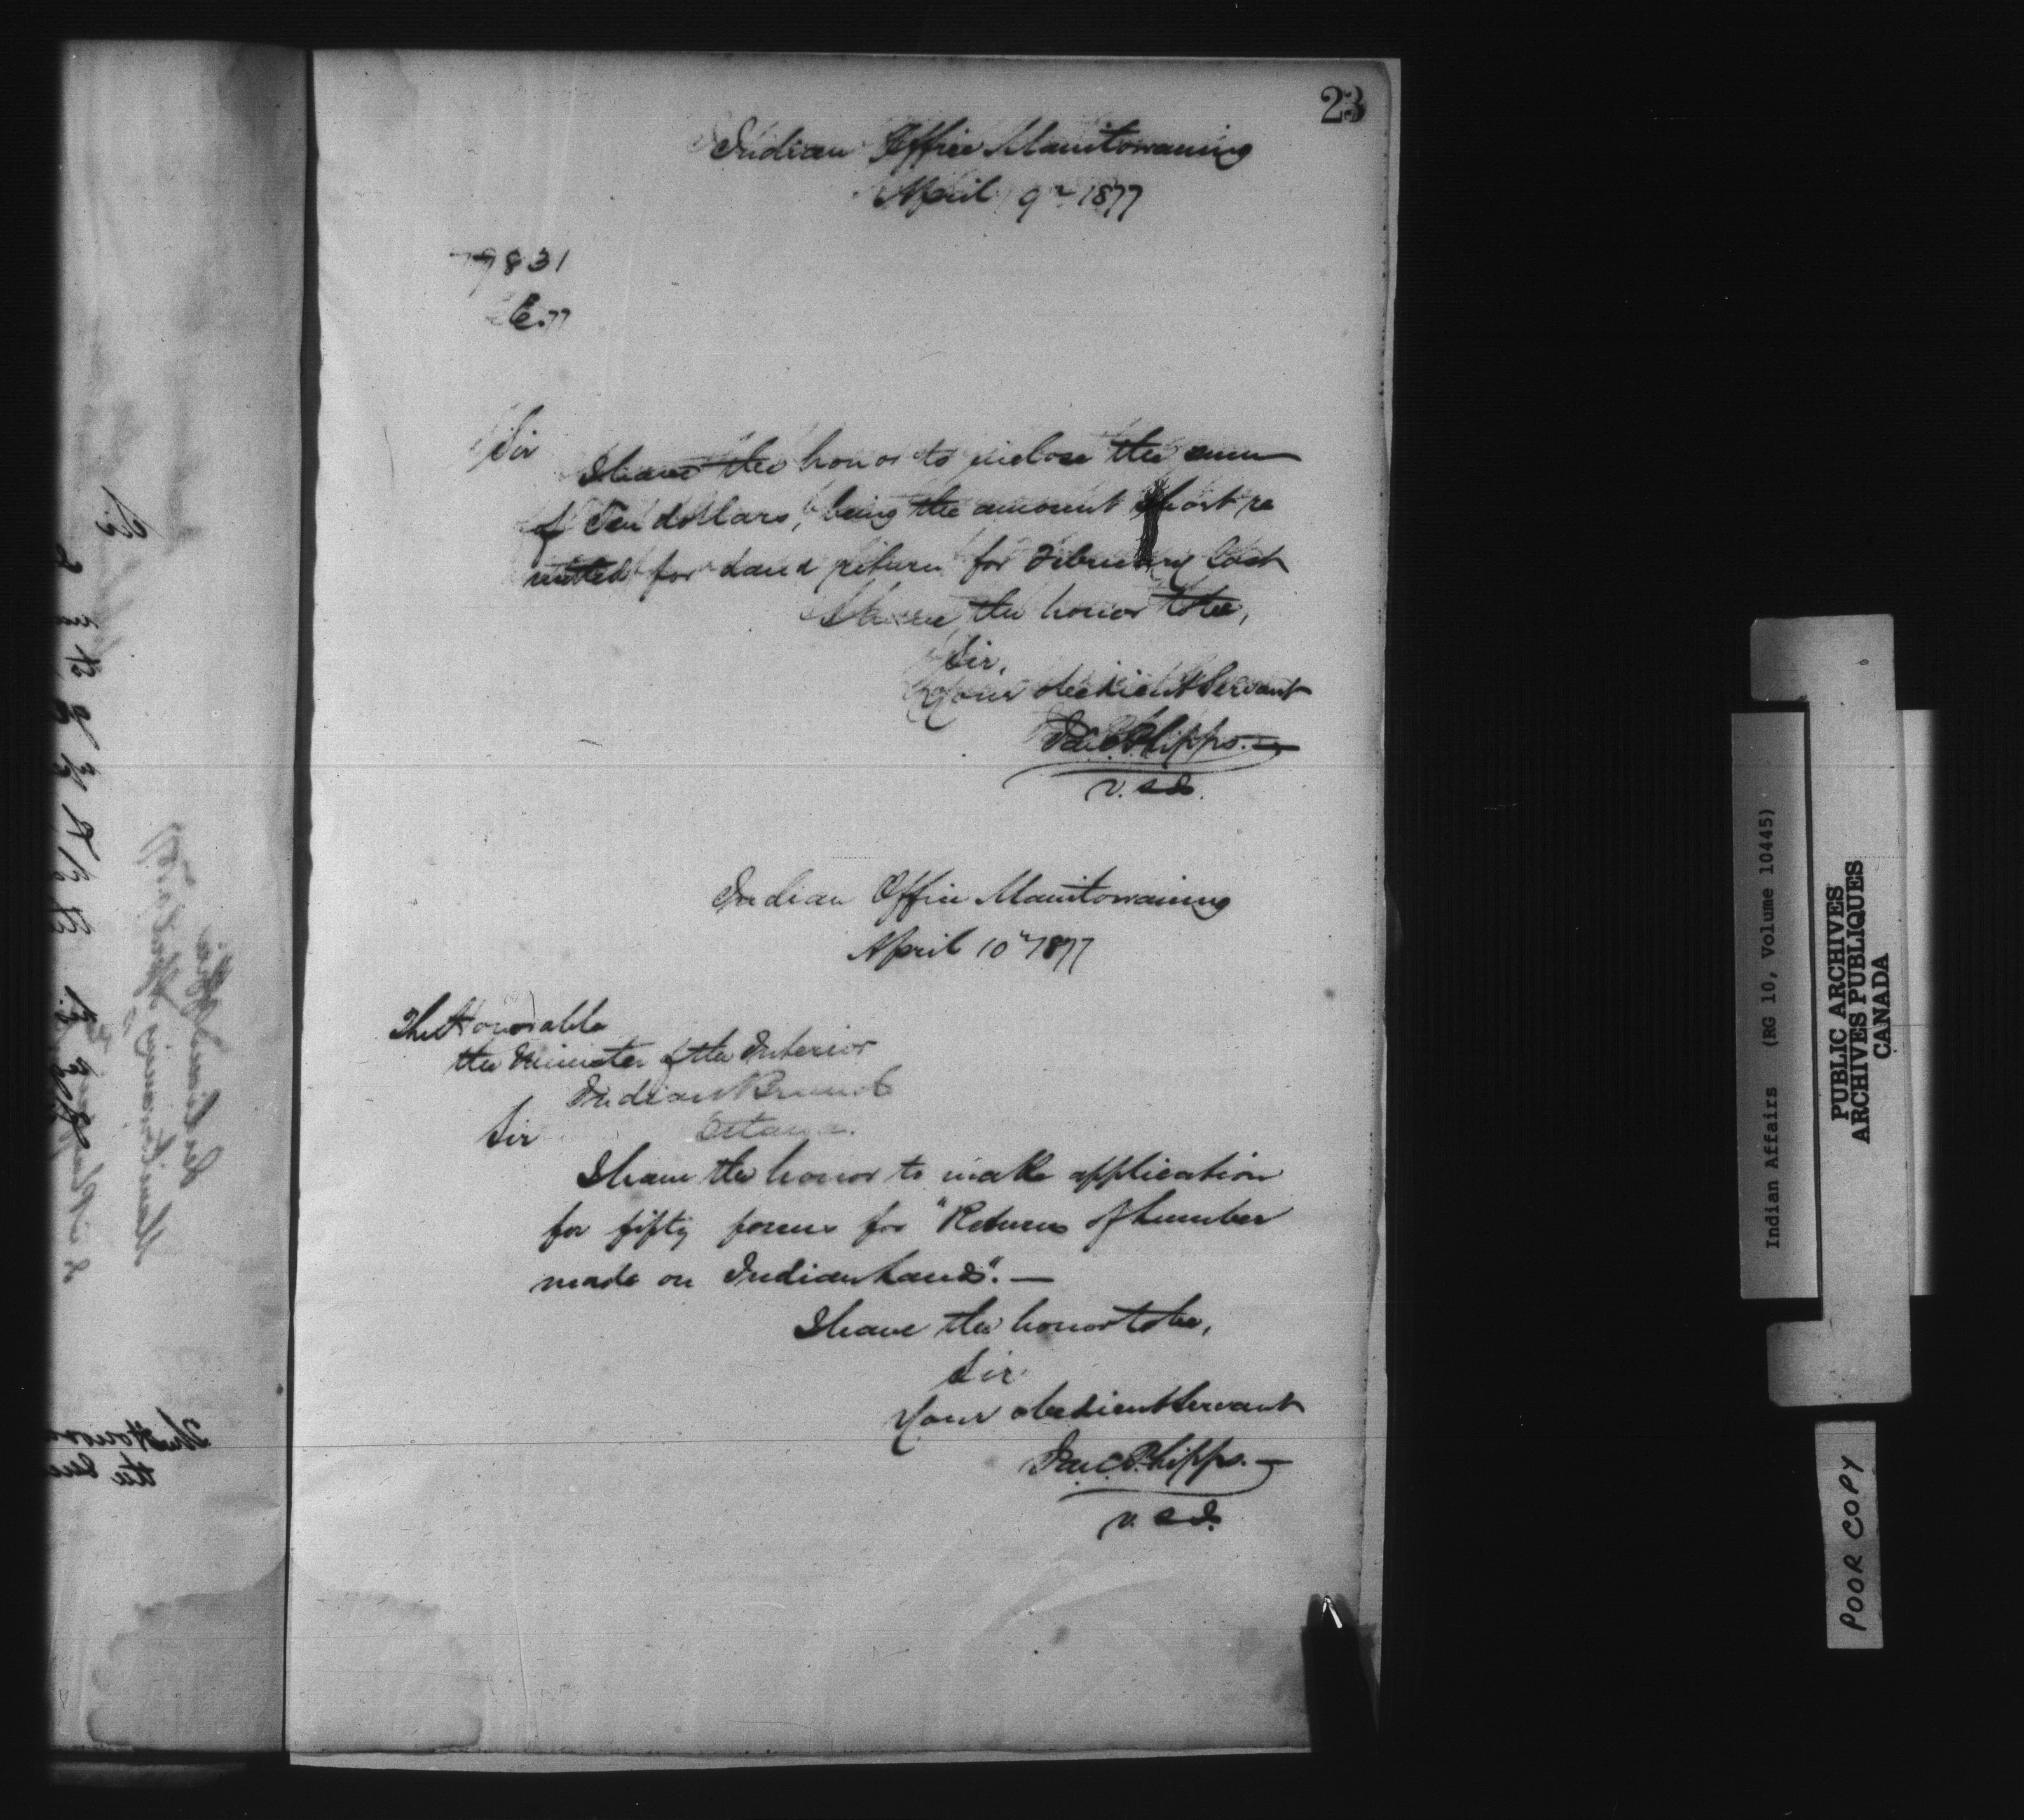 23
Indian Office Manitowaning
April 9th 1877
7831
77
Sir
I have the honor to inclose the sum
of Ten dollars, being the amount short re
mitted for Land return for February last
I have the honor to be,
Sir,
Your obedient Servant
Jas C. Phipps.
V. S. I.
Indian Office Manitowaning
April 10th 1877
The Honorable
the Minister of the Interior
Indian Branch
Ottawa.
Sir
I have the honor to make application
for fifty forms for "Returns of Lumber
made on Indian Lands". —
I have the honor to be,
Sir
Your obedient Servant
Jas C. Phipps. —
V. S. I.
Indian Affairs (RG 10, Volume 10445)
PUBLIC ARCHIVES
ARCHIVES PUBLIQUES
CANADA
POOR COPY